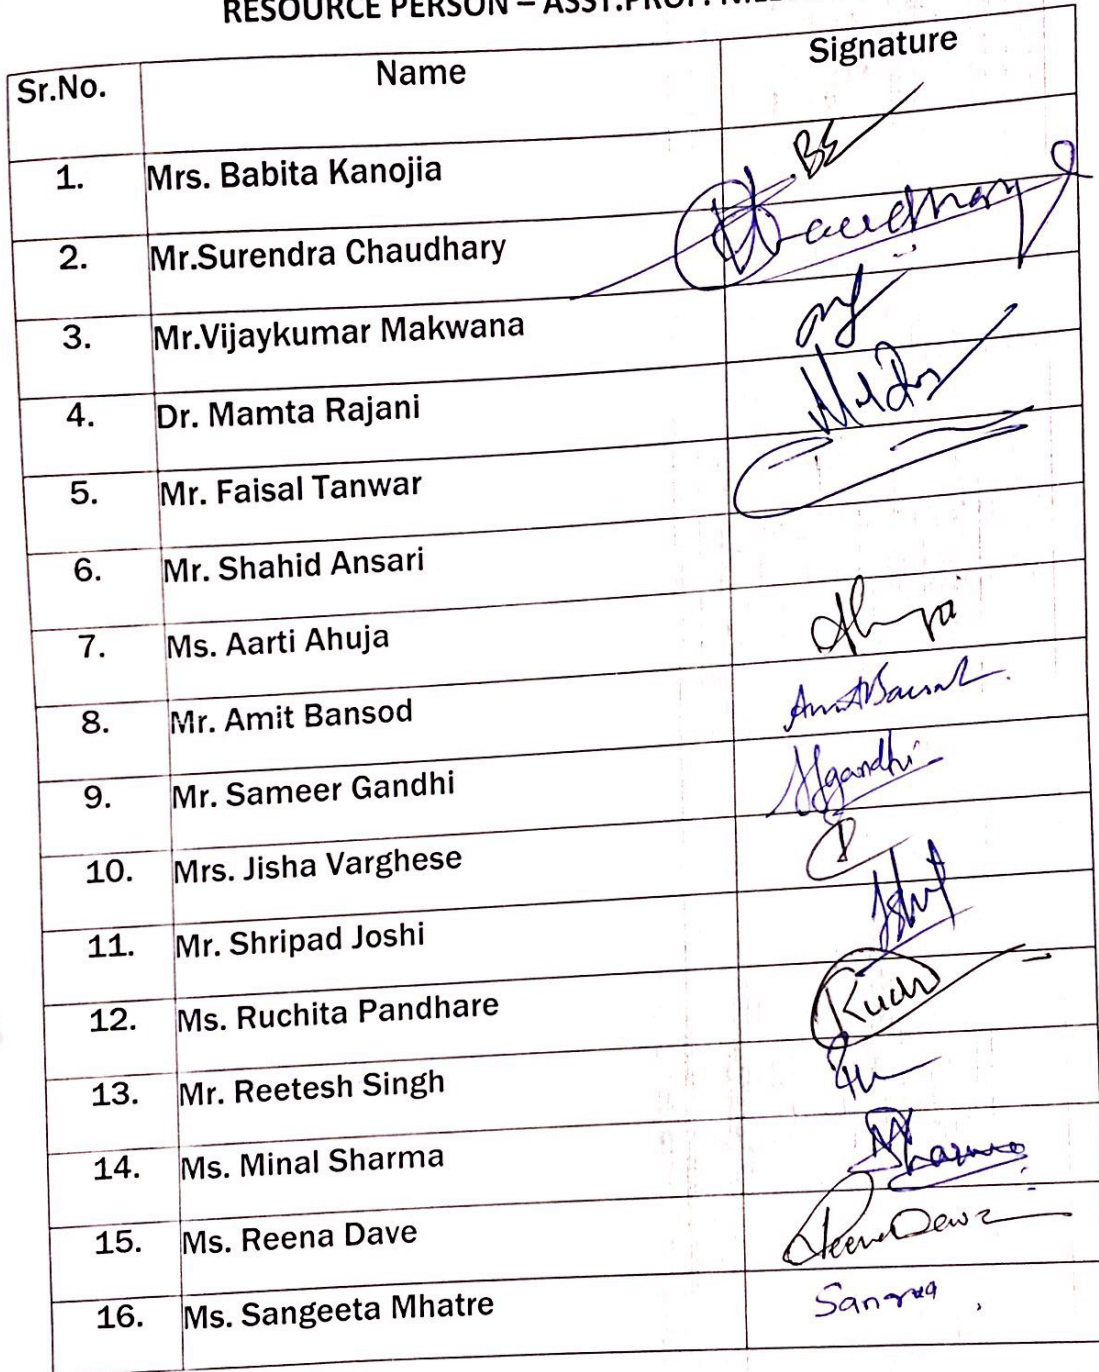 RESOURCE PERSON – ASST.PROF.
Sr.No. Name Signature
1. Mrs. Babita Kanojia
2. Mr.Surendra Chaudhary Chaudhary
3. Mr.Vijaykumar Makwana
4. Dr. Mamta Rajani
5. Mr. Faisal Tanwar
6. Mr. Shahid Ansari
7. Ms. Aarti Ahuja
8. Mr. Amit Bansod
9. Mr. Sameer Gandhi gandhi
10. Mrs. Jisha Varghese
11. Mr. Shripad Joshi
12. Ms. Ruchita Pandhare
13. Mr. Reetesh Singh
14. Ms. Minal Sharma
15. Ms. Reena Dave
16. Ms. Sangeeta Mhatre